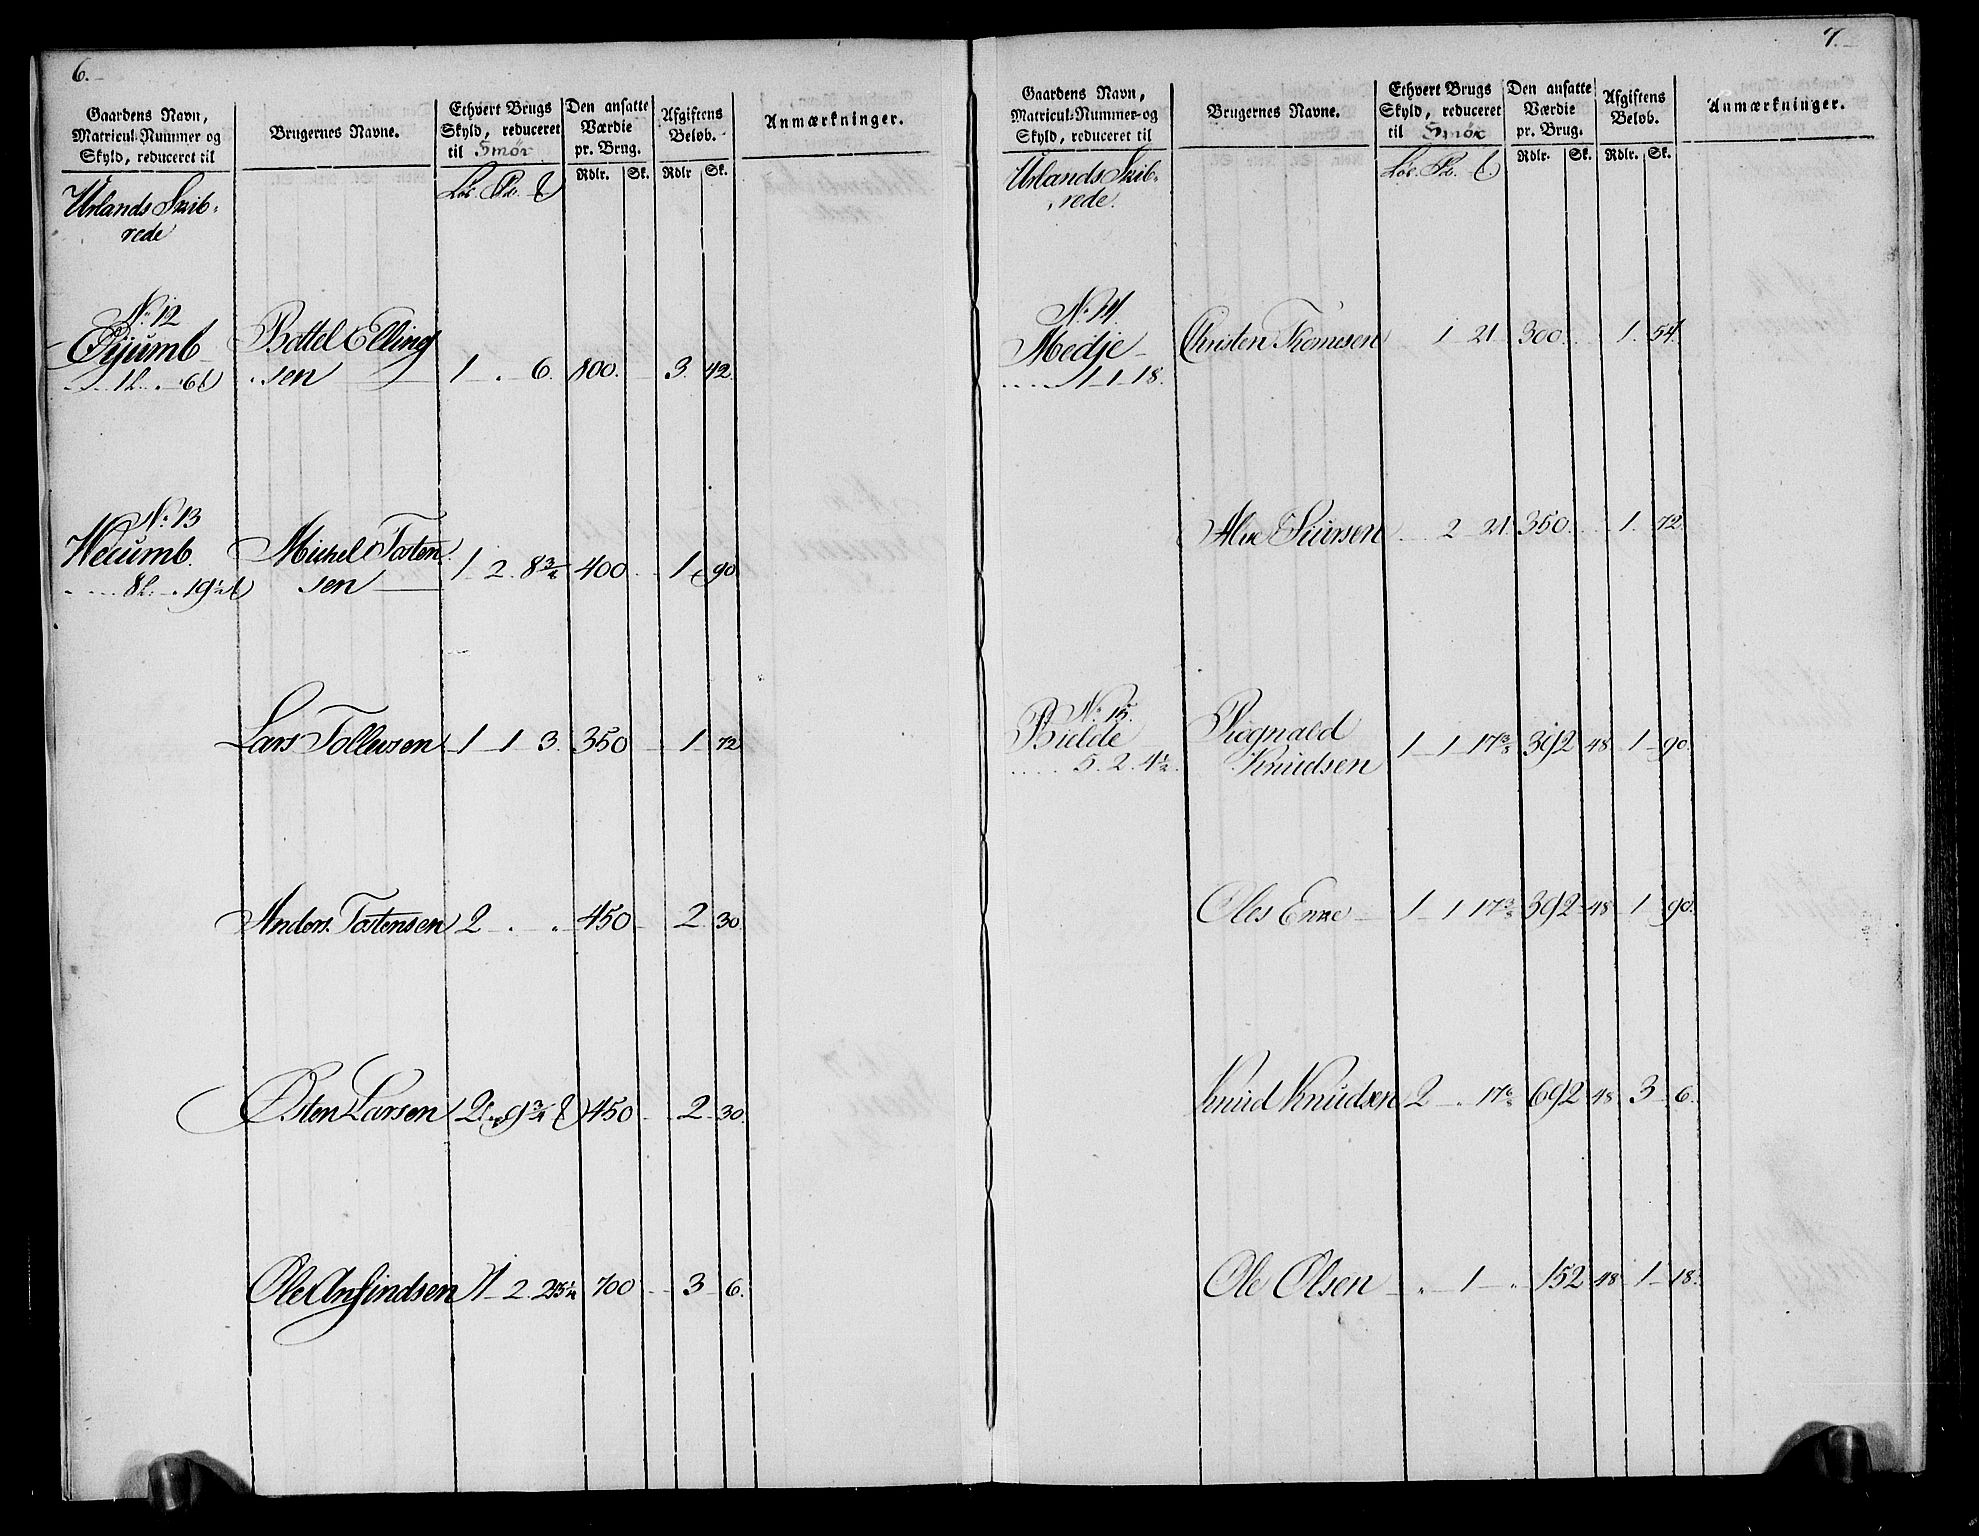 6.
Gaardens Navn,
Matricul-Nummer og
Skyld, reduceret til
Brugernes Navne.
Ethvert Brugs
Skyld, reduceret
til Smør
Den ansatte
Værdie
pr. Brug.
Rdlr. Sk.
Afgiftens
Beløb.
Rdlr Sk.
Anmærkninger.
Urlands Skib-
rede
No. 12
1 . 6
Bottel Elling
sen 1 . 6. 800. 3. 42.
No. 13
8 . 19½
Michel Tosten
sen 1 2 8¾ 400 1 90
Lars Tollevsen 1 1 3. 350 1 72
Anders Tostensen 2 . . 450 2 30
Østen Larsen 2 . 9¾ 450 2 30.
Ole Anfindsen 1 2 700 3 6.
7.
Gaardens Navn,
Matricul-Nummer og
Skyld, reduceret til
Brugernes Navne.
Ethvert Brugs
Skyld, reduceret
til Smør
Den ansatte
Værdie
pr. Brug.
Rdlr. Sk.
Afgiftens
Beløb.
Rdlr. Sk.
Anmærkninger.
Urlands Skib-
rede.
No. 14
Medje
1 1 18.
Christen 1 21 300. 1. 54.
2 21 350. 1. 72.
No. 15.
Bielde
5. 2. 4½
Rognald
Knudsen 1 1 17⅜ 392 48 1 90.
Oles Enke 1 1 17⅜ 392 48 1 90.
Knud Knudsen 2 . 17⅜ 692 48 3 6.
Ole Olsen . 1 . 152 48 1 18.